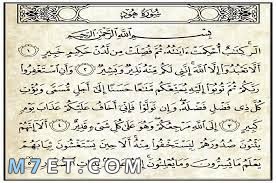 سُورَةُ هُودٍ
بِسْمِ اللَّهِ الرَّحْمَٰنِ الرَّحِيمِ
الر كِتَابٌ أُحْكِمَتْ آيَاتُهُ ثُمَّ فُصِّلَتْ مِن لَّدُنْ حَكِيمٍ خَبِيرٍ ١
أَلَّا تَعْبُدُوا إِلَّا اللَّهَ إِنَّنِي لَكُم مِّنْهُ نَذِيرٌ وَبَشِيرٌ ٢ وَأَنِ اسْتَغْفِرُوا
رَبَّكُمْ ثُمَّ تُوبُوا إِلَيْهِ يُمَتِّعْكُم مَّتَاعًا حَسَنًا إِلَىٰ أَجَلٍ مُّسَمًّى وَيُؤْتِ
كُلَّ ذِي فَضْلٍ فَضْلَهُ وَإِن تَوَلَّوْا فَإِنِّي أَخَافُ عَلَيْكُمْ عَذَابَ يَوْمٍ
كَبِيرٍ ٣ إِلَى اللَّهِ مَرْجِعُكُمْ وَهُوَ عَلَىٰ كُلِّ شَيْءٍ قَدِيرٌ ٤ أَلَا إِنَّهُمْ
يَثْنُونَ صُدُورَهُمْ لِيَسْتَخْفُوا مِنْهُ أَلَا حِينَ يَسْتَغْشُونَ ثِيَابَهُمْ
يَعْلَمُ مَا يُسِرُّونَ وَمَا يُعْلِنُونَ
M7ET.COM